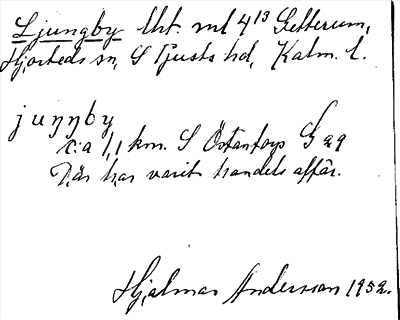 Ljungby lht. nd 4¹³ Getterum,
Hjorteds sn, S Tjusts hd, Kalm. l.
juŋŋby
c:a 1,1 km. S Östantorp
Där har varit handels affär.
Hjalmar Andersson 1952.